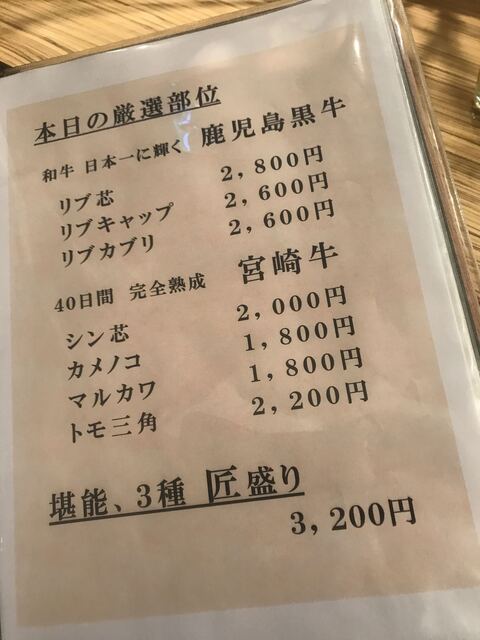 本日の厳選部位
和牛 日本一に輝く 鹿児島黒牛
リブ芯 2,800円
リブキャップ 2,600円
リブカブリ 2,600円
40日間 完全熟成 宮崎牛
シン芯 2,000円
カメノコ 1,800円
マルカワ 1,800円
トモ三角 2,200円
堪能、3種 匠盛り
3,200円